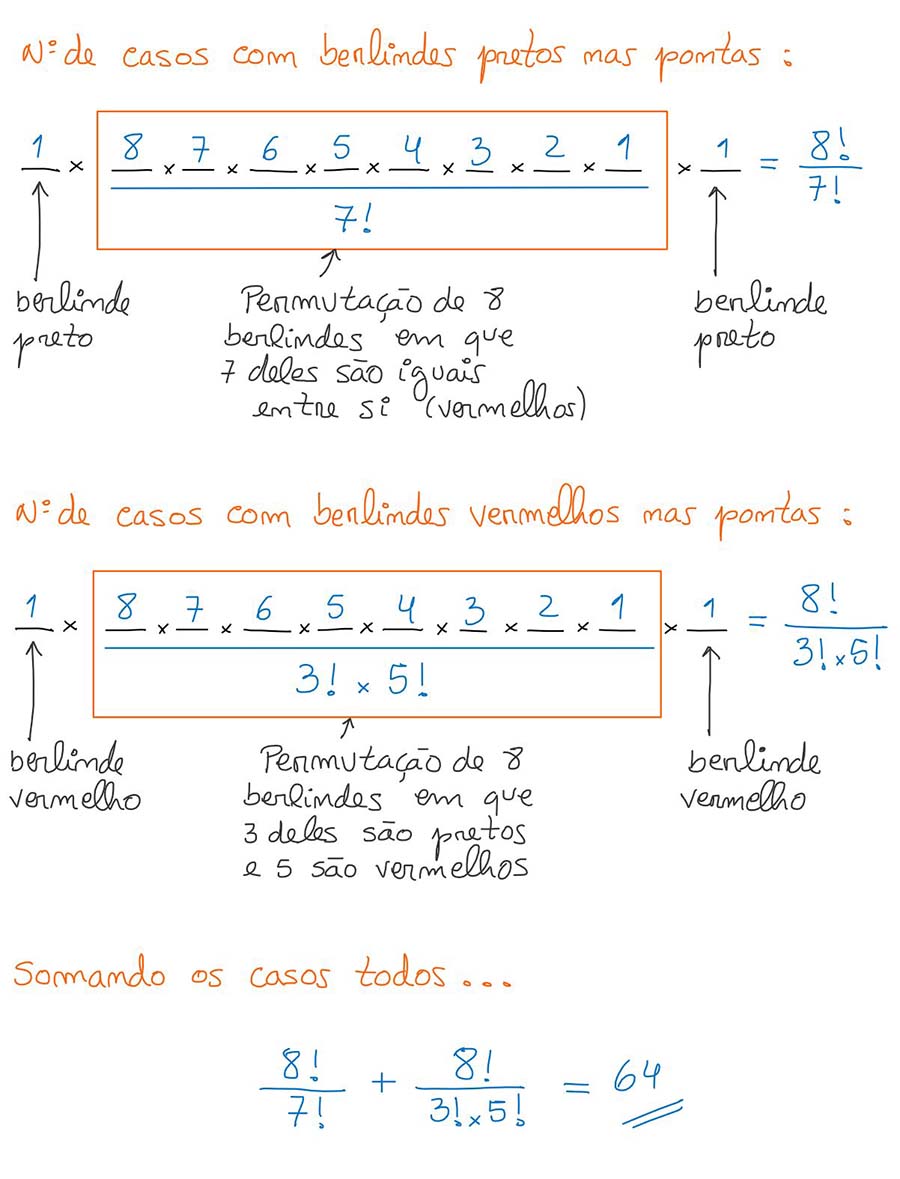 Nº de casos com berlindes pretos nas pontas :
1 × 8 × 7 × 6 × 5 × 4 × 3 × 2 × 1 / 7! × 1 = 8! / 7!
berlinde preto
Permutação de 8
berlindes em que
7 deles são iguais
entre si (vermelhos)
berlinde preto
Nº de casos com berlindes vermelhos nas pontas :
1 × 8 × 7 × 6 × 5 × 4 × 3 × 2 × 1 / 3! × 5! × 1 = 8! / 3! × 5!
berlinde
vermelho
Permutação de 8
berlindes em que
3 deles são pretos
e 5 são vermelhos
berlinde
vermelho
Somando os casos todos ...
8! / 7! + 8! / 3! × 5! = 64